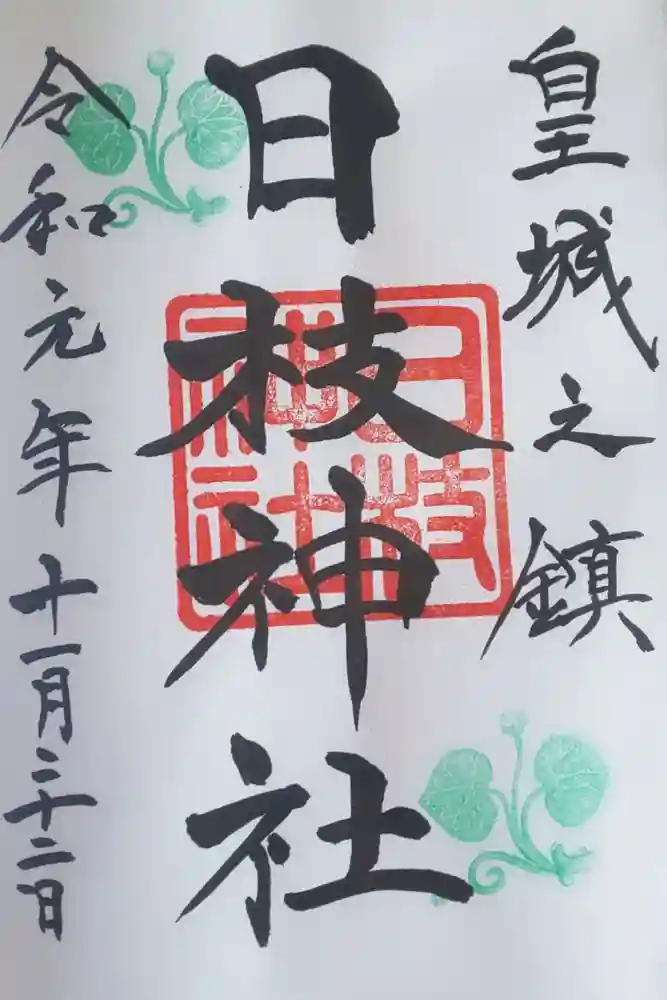 皇城之鎮
日枝神社
日枝神社
令和元年十一月二十二日